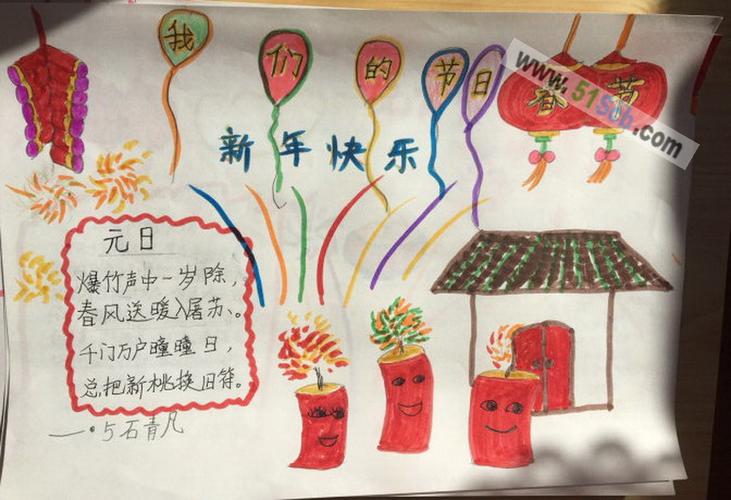 我们的节日
春节
www.51Sch.com
新年快乐
元日
爆竹声中一岁除，
春风送暖入屠苏、。
千门万户曈曈日，
总把新桃换旧符。
一·5石青凡